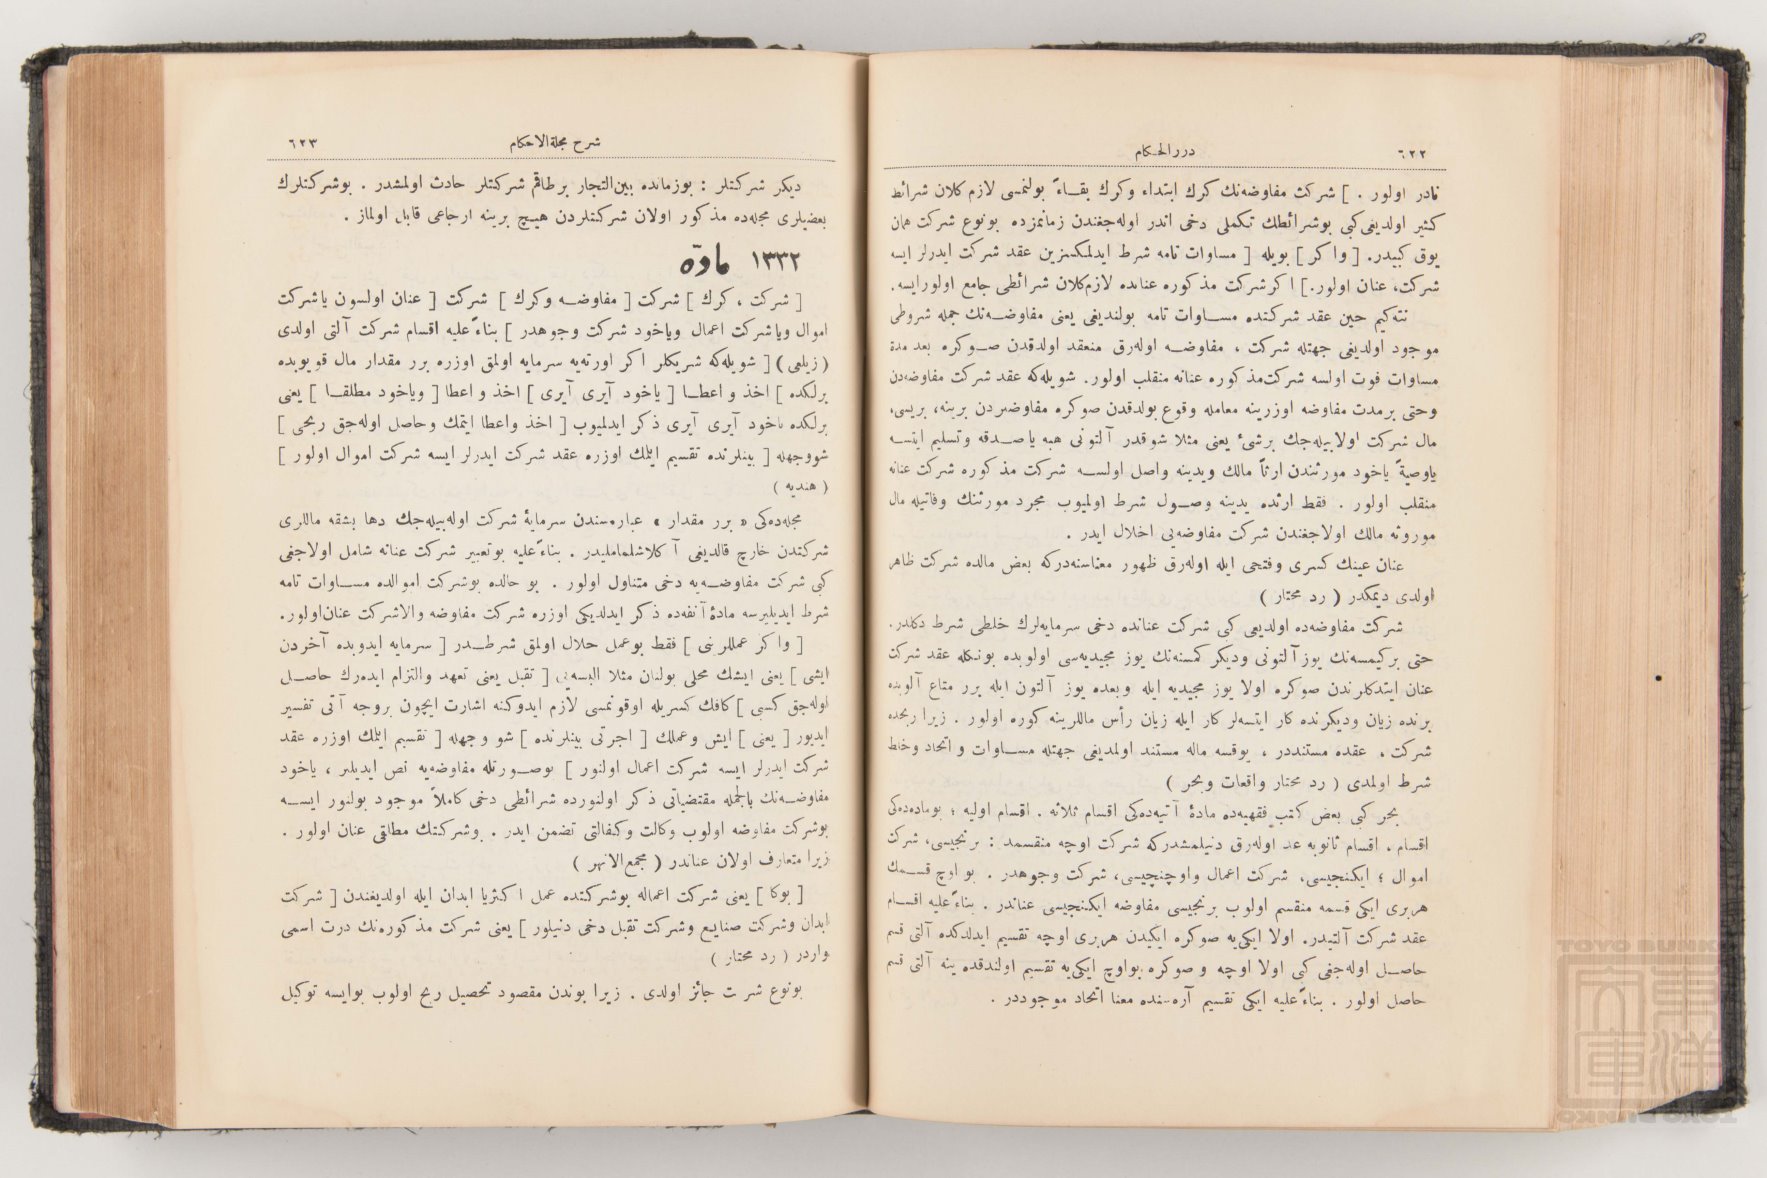 ٦٢٢
دررالحكام
نادر اولور . ] شركت مفاوضه‌نك كرك ابتداء وكرك بقــاءً بولنمسى لازم كلان شرائط
كثير اولديغى كبى بوشرائطك تكملى دخى اندر اوله‌جغندن زمانمزده بونوع شركت همان
يوق كبيدر. [ واكر ] بويله [ مساوات تامه شرط ايدلمكسزين عقد شركت ايدرلر ايسه
شركت، عنان اولور.] اكر شركت مذكوره عنانده لازم‌كلان شرائطى جامع اولورايسه.
نته‌كيم حين عقد شركتده مســاوات تامه بولنديغى يعنى مفاوضــه‌نك جمله شروطى
موجود اولديغى جهتله شركت ، مفاوضــه اوله‌رق منعقد اولدقدن صــوكره بعد مدة
مساوات فوت اولسه شركت‌مذكوره عنانه منقلب اولور. شويله‌كه عقد شركت مفاوضه‌دن
وحتى برمدت مفاوضه اوزرينه معامله وقوع بولدقدن صوكره مفاوضردن برينه، بريسى،
مال شركت اولابيله‌جك برشئ يعنى مثلا شوقدر آلتونى هبه ياصــدقه وتسليم ايتســه
ياوصيةً ياخود مورثندن ارثاً مالك ويدينه واصل اولســه شركت مذكوره شركت عنانه
منقلب اولور . فقط ارثده يدينه وصــول شرط اولميوب مجرد مورثنك وفاتيله مال
موروثه مالك اولاجغندن شركت مفاوضه‌يى اخلال ايدر .
عنان عينك كسرى وفتحى ايله اوله‌رق ظهور معناسنه‌دركه بعض مالده شركت ظاهر
اولدى ديمكدر ( رد محتار )
شركت مفاوضه‌ده اولديغى كبى شركت عنانده دخى سرمايه‌لرك خلطى شرط دكلدر.
حتى بركيمسه‌نك يوز آلتونى وديكر كمسنه‌نك يوز مجيديه‌سى اولوبده بونكله عقد شركت
عنان ايتدكلرندن صوكره اولا يوز مجيديه ايله وبعده يوز آلتون ايله برر متاع آلوبده
برنده زيان وديكرنده كار ايتسه‌لر كار ايله زيان رأس ماللرينه كوره اولور . زيرا ربحده
شركت ، عقده مستنددر ، يوقسه ماله مستند اولمديغى جهتله مســاوات واتحاد وخلط
شرط اولمدى ( رد محتار واقعات وبحر )
بحر كبى بعض كتب فقهيه‌ده مادۀ آتيه‌ده‌كى اقسام ثلاثه . اقسام اوليه ؛ بوماده‌ده‌كى
اقسام ، اقسام ثانويه عد اوله‌رق دنيلمشدركه شركت اوچه منقسمدر : برنجيسى، شركت
اموال ؛ ايكنجيسى، شركت اعمال واوچنجيسى، شركت وجوهدر . بو اوچ قســمك
هربرى ايكى قسمه منقسم اولوب برنجيسى مفاوضه ايكنجيسى عناندر . بناءً عليه اقســام
عقد شركت آلتيدر. اولا ايكى‌يه صوكره ايكيدن هربرى اوچه تقسيم ايدلدكده آلتى قسم
حاصــل اوله‌جغى كبى اولا اوچه و صوكره بواوچ ايكى‌يه تقسيم اولندقده ينه آلتى قسم
حاصل اولور . بناءً عليه ايكى تقسيم آره‌سنده معنا اتحاد موجوددر .
شرح مجلةالاحكام
٦٢٣
ديكر شركتلر : بوزمانده بين‌التجار برطاقم شركتلر حادث اولمشدر . بوشركتلرك
بعضيلرى مجله‌ده مذكور اولان شركتلردن هيــچ برينه ارجاعى قابل اولماز .
١٣٣٢ مادّه
[ شركت ، كرك ] شركت [ مفاوضــه وكرك ] شركت [ عنان اولسون ياشركت
اموال وياشركت اعمال وياخود شركت وجوهدر ] بناءً عليه اقسام شركت آلتى اولدى
(زيلعى) [ شويله‌كه شريكلر اكر اورته‌يه سرمايه اولمق اوزره برر مقدار مال قويوبده
برلكده ] اخذ و اعطــا [ ياخود آيرى آيرى ] اخذ و اعطا [ وياخود مطلقــا ] يعنى
برلكده ياخود آيرى آيرى ذكر ايدلميوب [ اخذ واعطا ايتمك وحاصل اوله‌جق ربحى ]
شووجهله [ بينلرنده تقسيم ايلمك اوزره عقد شركت ايدرلر ايسه شركت اموال اولور ]
( هنديه )
مجله‌ده‌كى « برر مقدار » عباره‌سندن سرمايۀ شركت اوله‌بيله‌جك دها بشقه ماللرى
شركتدن خارج قالديغى آكلاشلماملیدر . بناءً عليه بوتعبير شركت عنانه شامل اولاجغى
كبى شركت مفاوضــه‌يه دخى متناول اولور . بو حالده بوشركت اموالده مســاوات تامه
شرط ايديليرسه مادۀ آنفه‌ده ذكر ايدلديكى اوزره شركت مفاوضه والاشركت عنان‌اولور.
[ واكر عمللرينى ] فقط بوعمل حلال اولمق شرطــدر [ سرمايه ايدوبده آخردن
ايشى ] يعنى ايشك محلى بولنان مثلا البسه‌يى [ تقبل يعنى تعهد والتزام ايده‌رك حاصــل
اوله‌جق كسبى ] كافك كسريله اوقونمسى لازم ايدوكنه اشارت ايچون بروجه آتى تفسير
ايديور [ يعنى ] ايش وعملك [ اجرتى بينلرنده ] شو وجهله [ تقسيم ايلمك اوزره عقد
شركت ايدرلر ايسه شركت اعمال اولنور ] بوصــورتله مفاوضه‌يه نص ايديلير ، ياخود
مفاوضــه‌نك بالجمله مقتضياتى ذكر اولنورده شرائطى دخى كاملاً موجود بولنور ايســه
بوشركت مفاوضه اولوب وكالت وكفالتى تضمن ايدر . وشركتك مطلقى عنان اولور .
زيرا متعارف اولان عناندر ( مجمع‌الانهر )
[ بوكا ] يعنى شركت اعماله بوشركتده عمل اكثريا ابدان ايله اولديغندن [ شركت
ابدان وشركت صنايع وشركت تقبل دخى دنيلور ] يعنى شركت مذكوره‌نك درت اسمى
واردر ( رد محتار )
بونوع شركت جائز اولدى . زيرا بوندن مقصود تحصيل ربح اولوب بوايسه توكيل
TOYO BUNKO